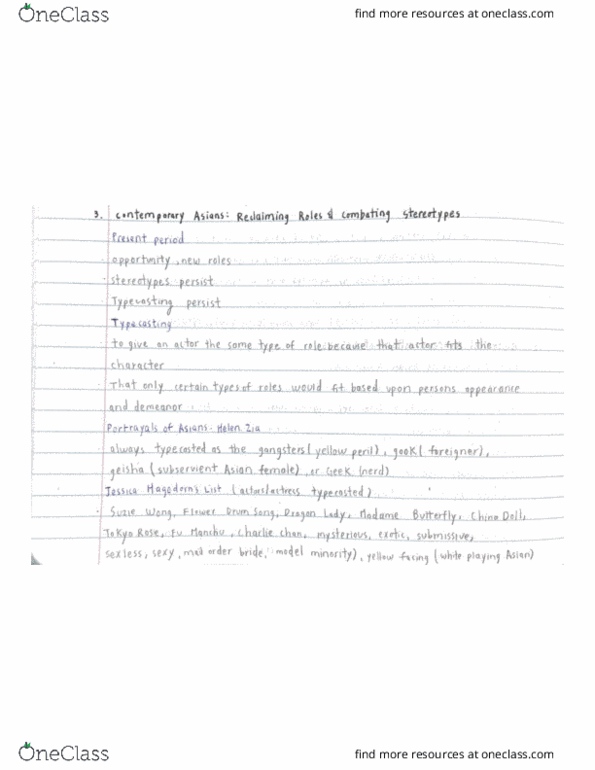 OneClass
find more resources at oneclass.com
3. Contemporary Asians: Reclaiming Roles & Combating Stereotypes
Present period
- opportunity, new roles
- stereotypes persist
- Typecasting persist
Typecasting
- to give an actor the same type of role because that actor fits the
character
- That only certain types of roles would fit based upon persons appearance
and demeanor
Portrayals of Asians: Helen Zia
- always typecasted as the gangsters (yellow peril), gook (foreigner),
geisha (subservient Asian female), or Geek (nerd)
Jessica Hagedorn's List (actors/actress typecasted)
- Suzie Wong, Flower Drum Song, Dragon Lady, Madame Butterfly, China Doll,
Tokyo Rose, Fu Manchu, Charlie Chan, mysterious, exotic, submissive,
sexless, sexy, mail order bride, model minority), yellow facing (white playing Asian)
OneClass
find more resources at oneclass.com